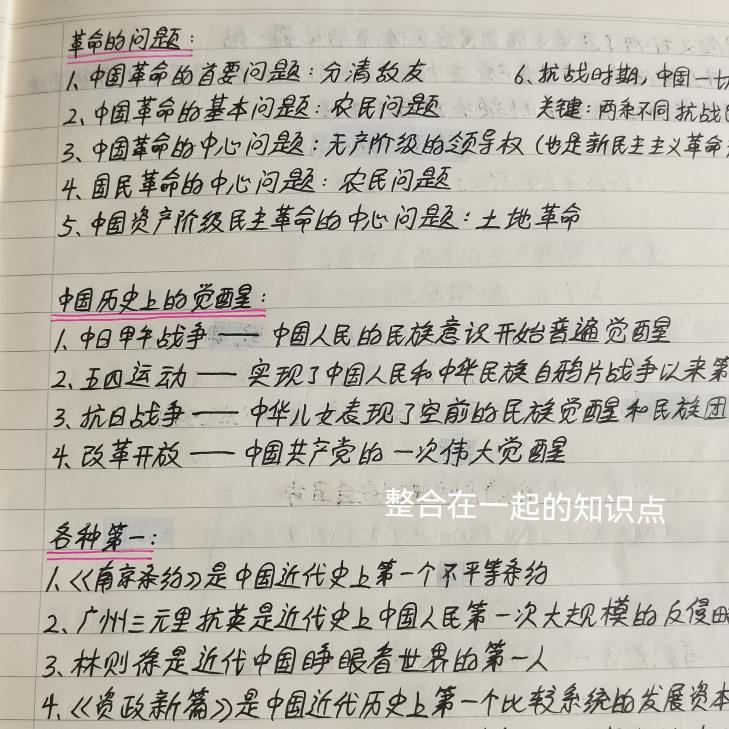 革命的问题:
1、中国革命的首要问题:分清敌友
6、抗战时期,中国一切
2、中国革命的基本问题:农民问题
关键:两条不同抗战
3、中国革命的中心问题:无产阶级的领导权(也是新民主主义革命
4、国民革命的中心问题:农民问题
5、中国资产阶级民主革命的中心问题:土地革命
中国历史上的觉醒:
1、中日甲午战争——中国人民的民族意识开始普遍觉醒
2、五四运动——实现了中国人民和中华民族自鸦片战争以来第
3、抗日战争——中华儿女表现了空前的民族觉醒和民族团
4、改革开放——中国共产党的一次伟大觉醒
整合在一起的知识点
各种第一:
1、《南京条约》是中国近代史上第一个不平等条约
2、广州三元里抗英是近代史上中国人民第一次大规模的反侵略
3、林则徐是近代中国睁眼看世界的第一人
4、《资政新篇》是中国近代历史上第一个比较系统的发展资本